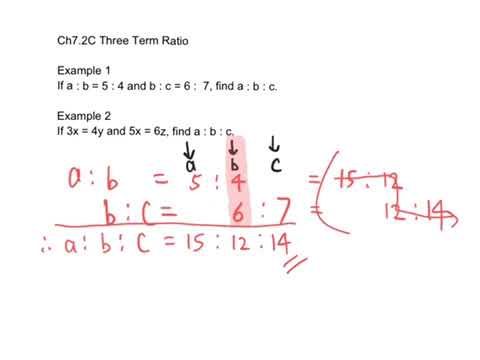 Ch7.2C Three Term Ratio
Example 1
If a : b = 5 : 4 and b : c = 6 : 7, find a : b : c.
Example 2
If 3x = 4y and 5x = 6z, find a : b : c.
a b c
a : b = 5 : 4 = 15 : 12
b : c = 6 : 7 = 12 : 14
∴ a : b : c = 15 : 12 : 14